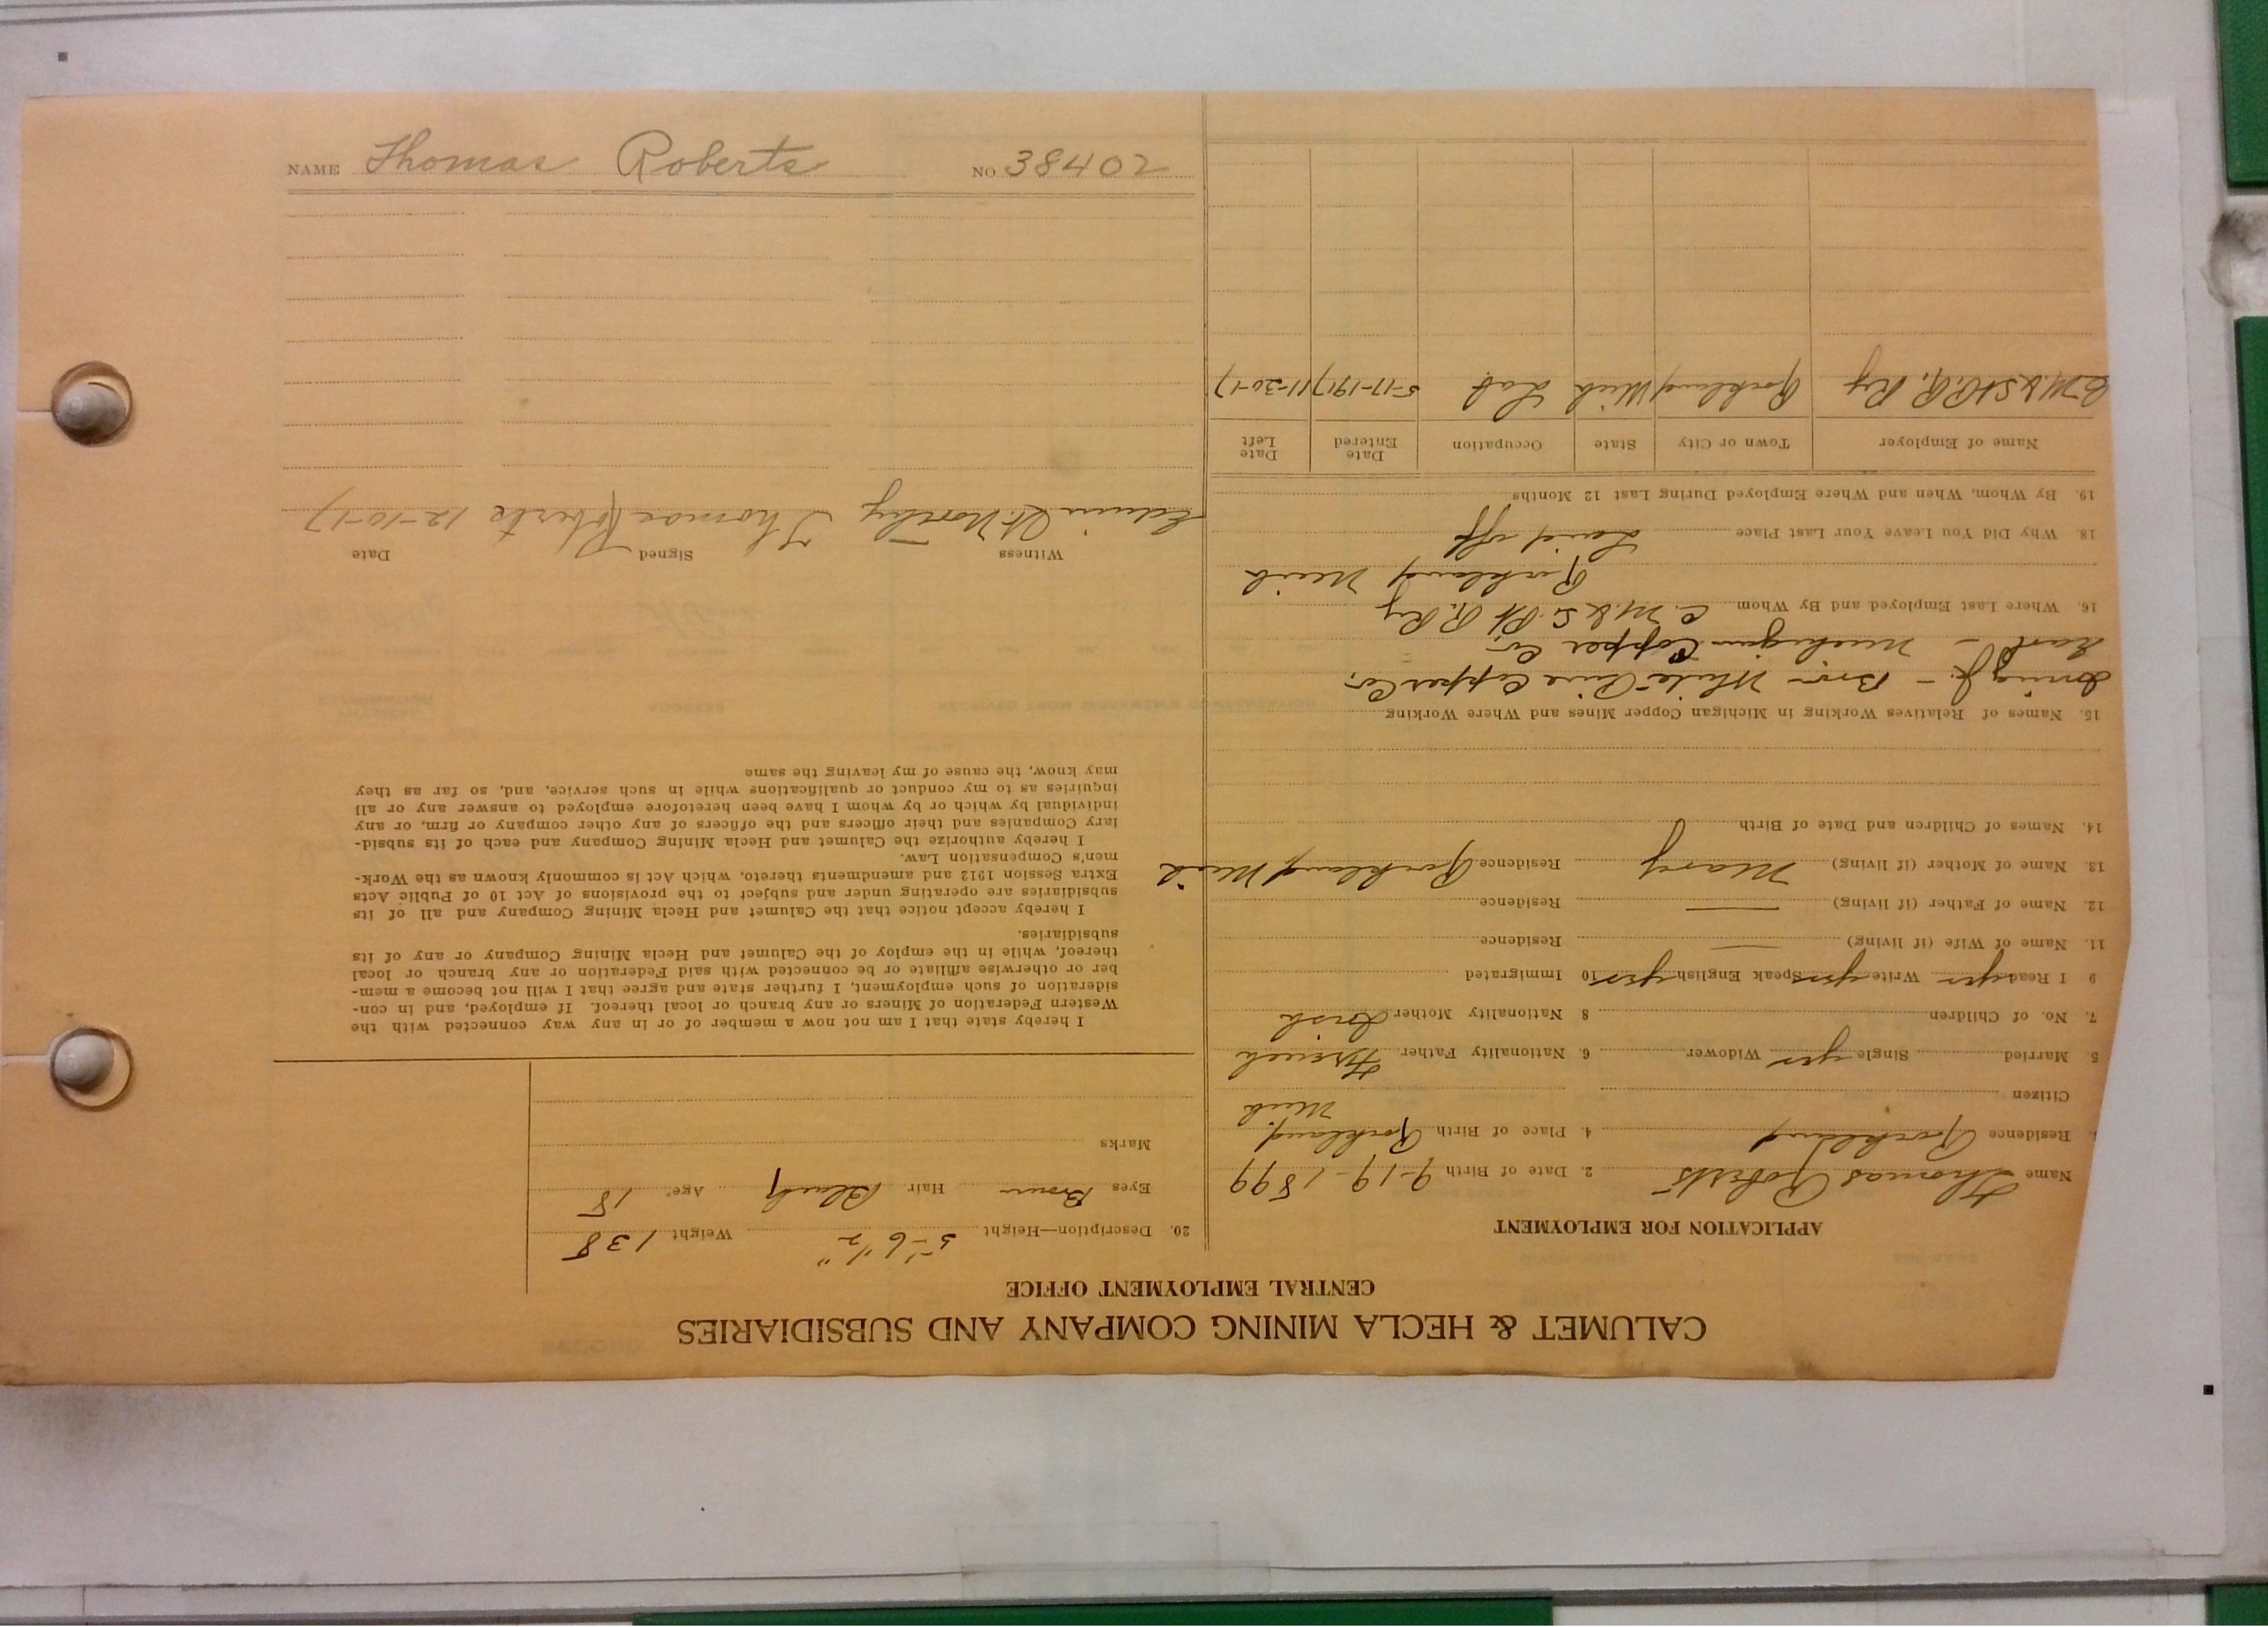 CALUMET & HECLA MINING COMPANY AND SUBSIDIARIES
CENTRAL EMPLOYMENT OFFICE
APPLICATION FOR EMPLOYMENT
Name Thomas Roberts 2. Date of Birth 9-19-1899
Residence Rockland 4. Place of Birth Rockland, Mich
Citizen
5. Married Single yes Widower 6. Nationality Father French
7. No. of Children 8 Nationality Mother Irish
9 I Read yes Write yes Speak English yes 10 Immigrated
11. Name of Wife (if living) — Residence
12. Name of Father (if living) — Residence
13. Name of Mother (if living) Mary Residence Rockland Mich
14. Names of Children and Date of Birth
15. Names of Relatives Working in Michigan Copper Mines and Where Working
Bro- White Pine Copper Co.
– Michigan Copper Co
16. Where Last Employed and By Whom C. M. & S. P. R. Ry
Rockland Mich
18. Why Did You Leave Your Last Place Laid off
19. By Whom, When and Where Employed During Last 12 Months
Name of Employer Town or City State Occupation Date Entered Date Left
C M. & St P. R. Ry Rockland Mich Lab. 5-11-1917 11-30-17
20. Description—Height 5-6 1/2" Weight 138
Eyes Brown Hair Black Age 18
Marks
I hereby state that I am not now a member of or in any way connected with the
Western Federation of Miners or any branch or local thereof. If employed, and in con-
sideration of such employment, I further state and agree that I will not become a mem-
ber or otherwise affiliate or be connected with said Federation or any branch or local
thereof, while in the employ of the Calumet and Hecla Mining Company or any of its
subsidiaries.
I hereby accept notice that the Calumet and Hecla Mining Company and all of its
subsidiaries are operating under and subject to the provisions of Act 10 of Public Acts
Extra Session 1912 and amendments thereto, which Act is commonly known as the Work-
men's Compensation Law.
I hereby authorize the Calumet and Hecla Mining Company and each of its subsid-
iary Companies and their officers and the officers of any other company or firm, or any
individual by which or by whom I have been heretofore employed to answer any or all
inquiries as to my conduct or qualifications while in such service, and, so far as they
may know, the cause of my leaving the same
Witness Signed Date
Edwin Thomas Roberts 12-10-17
NAME Thomas Roberts NO 38402